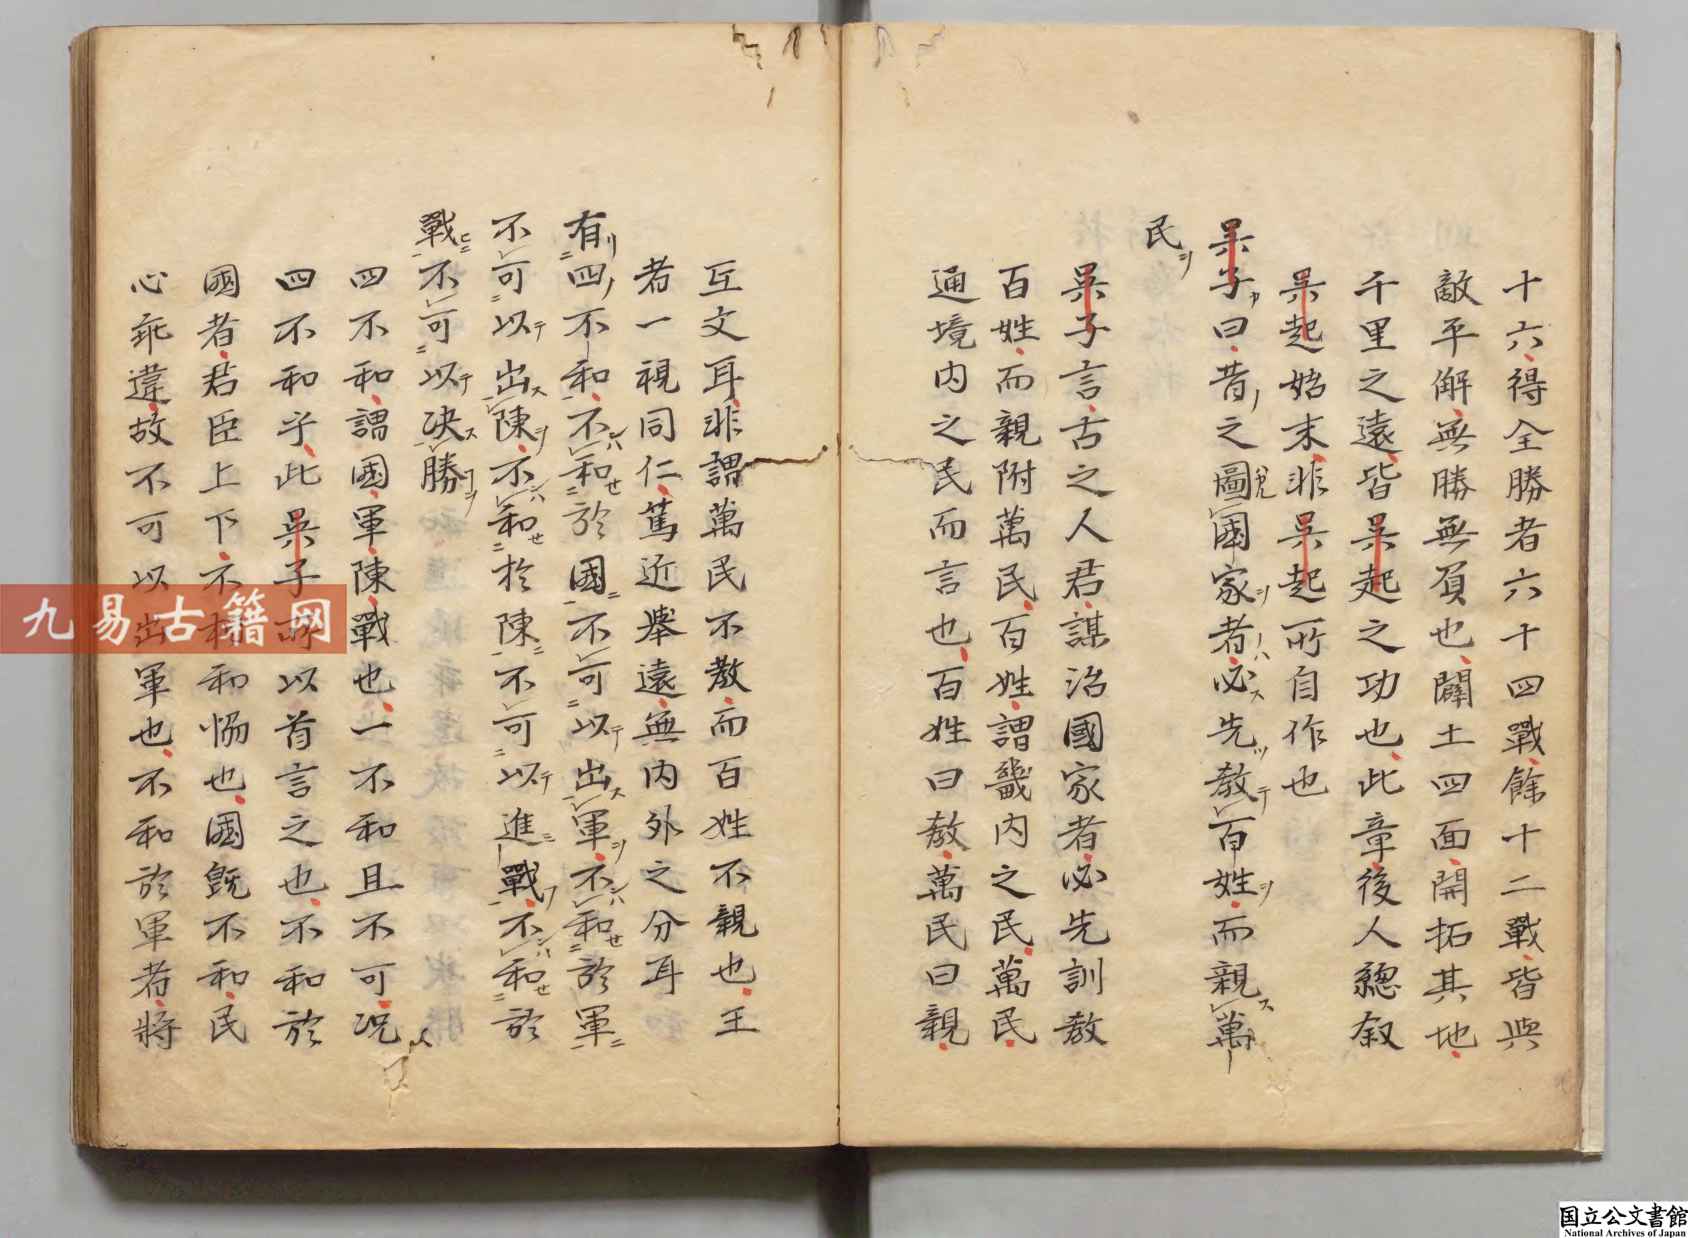 十六得全勝者六十四戰餘十二戰皆與
敵平解無勝無負也闢土四面開拓其地
千里之遠皆吳起之功也此章後人總叙
吳起始末非吳起所自作也
吳子曰昔之圖國家者必先教百姓而親萬
民
吳子言古之人君謀治國家者必先訓教
百姓而親附萬民百姓謂畿內之民萬民
通境内之民而言也百姓曰教萬民曰親
互文耳非謂萬民不教而百姓不親也王
者一視同仁篤近舉遠無内外之分耳
有四不和不和於國不可以出軍不和於軍
不可以出陳不和於陳不可以進戰不和於
戰不可以决勝
四不和謂國軍陳戰也一不和且不可況
四不和乎此吳子所以首言之也不和於
國者君臣上下不相和恊也國既不和民
心乖違故不可以出軍也不和於軍者將
九易古籍网
国立公文書館
National Archives of Japan